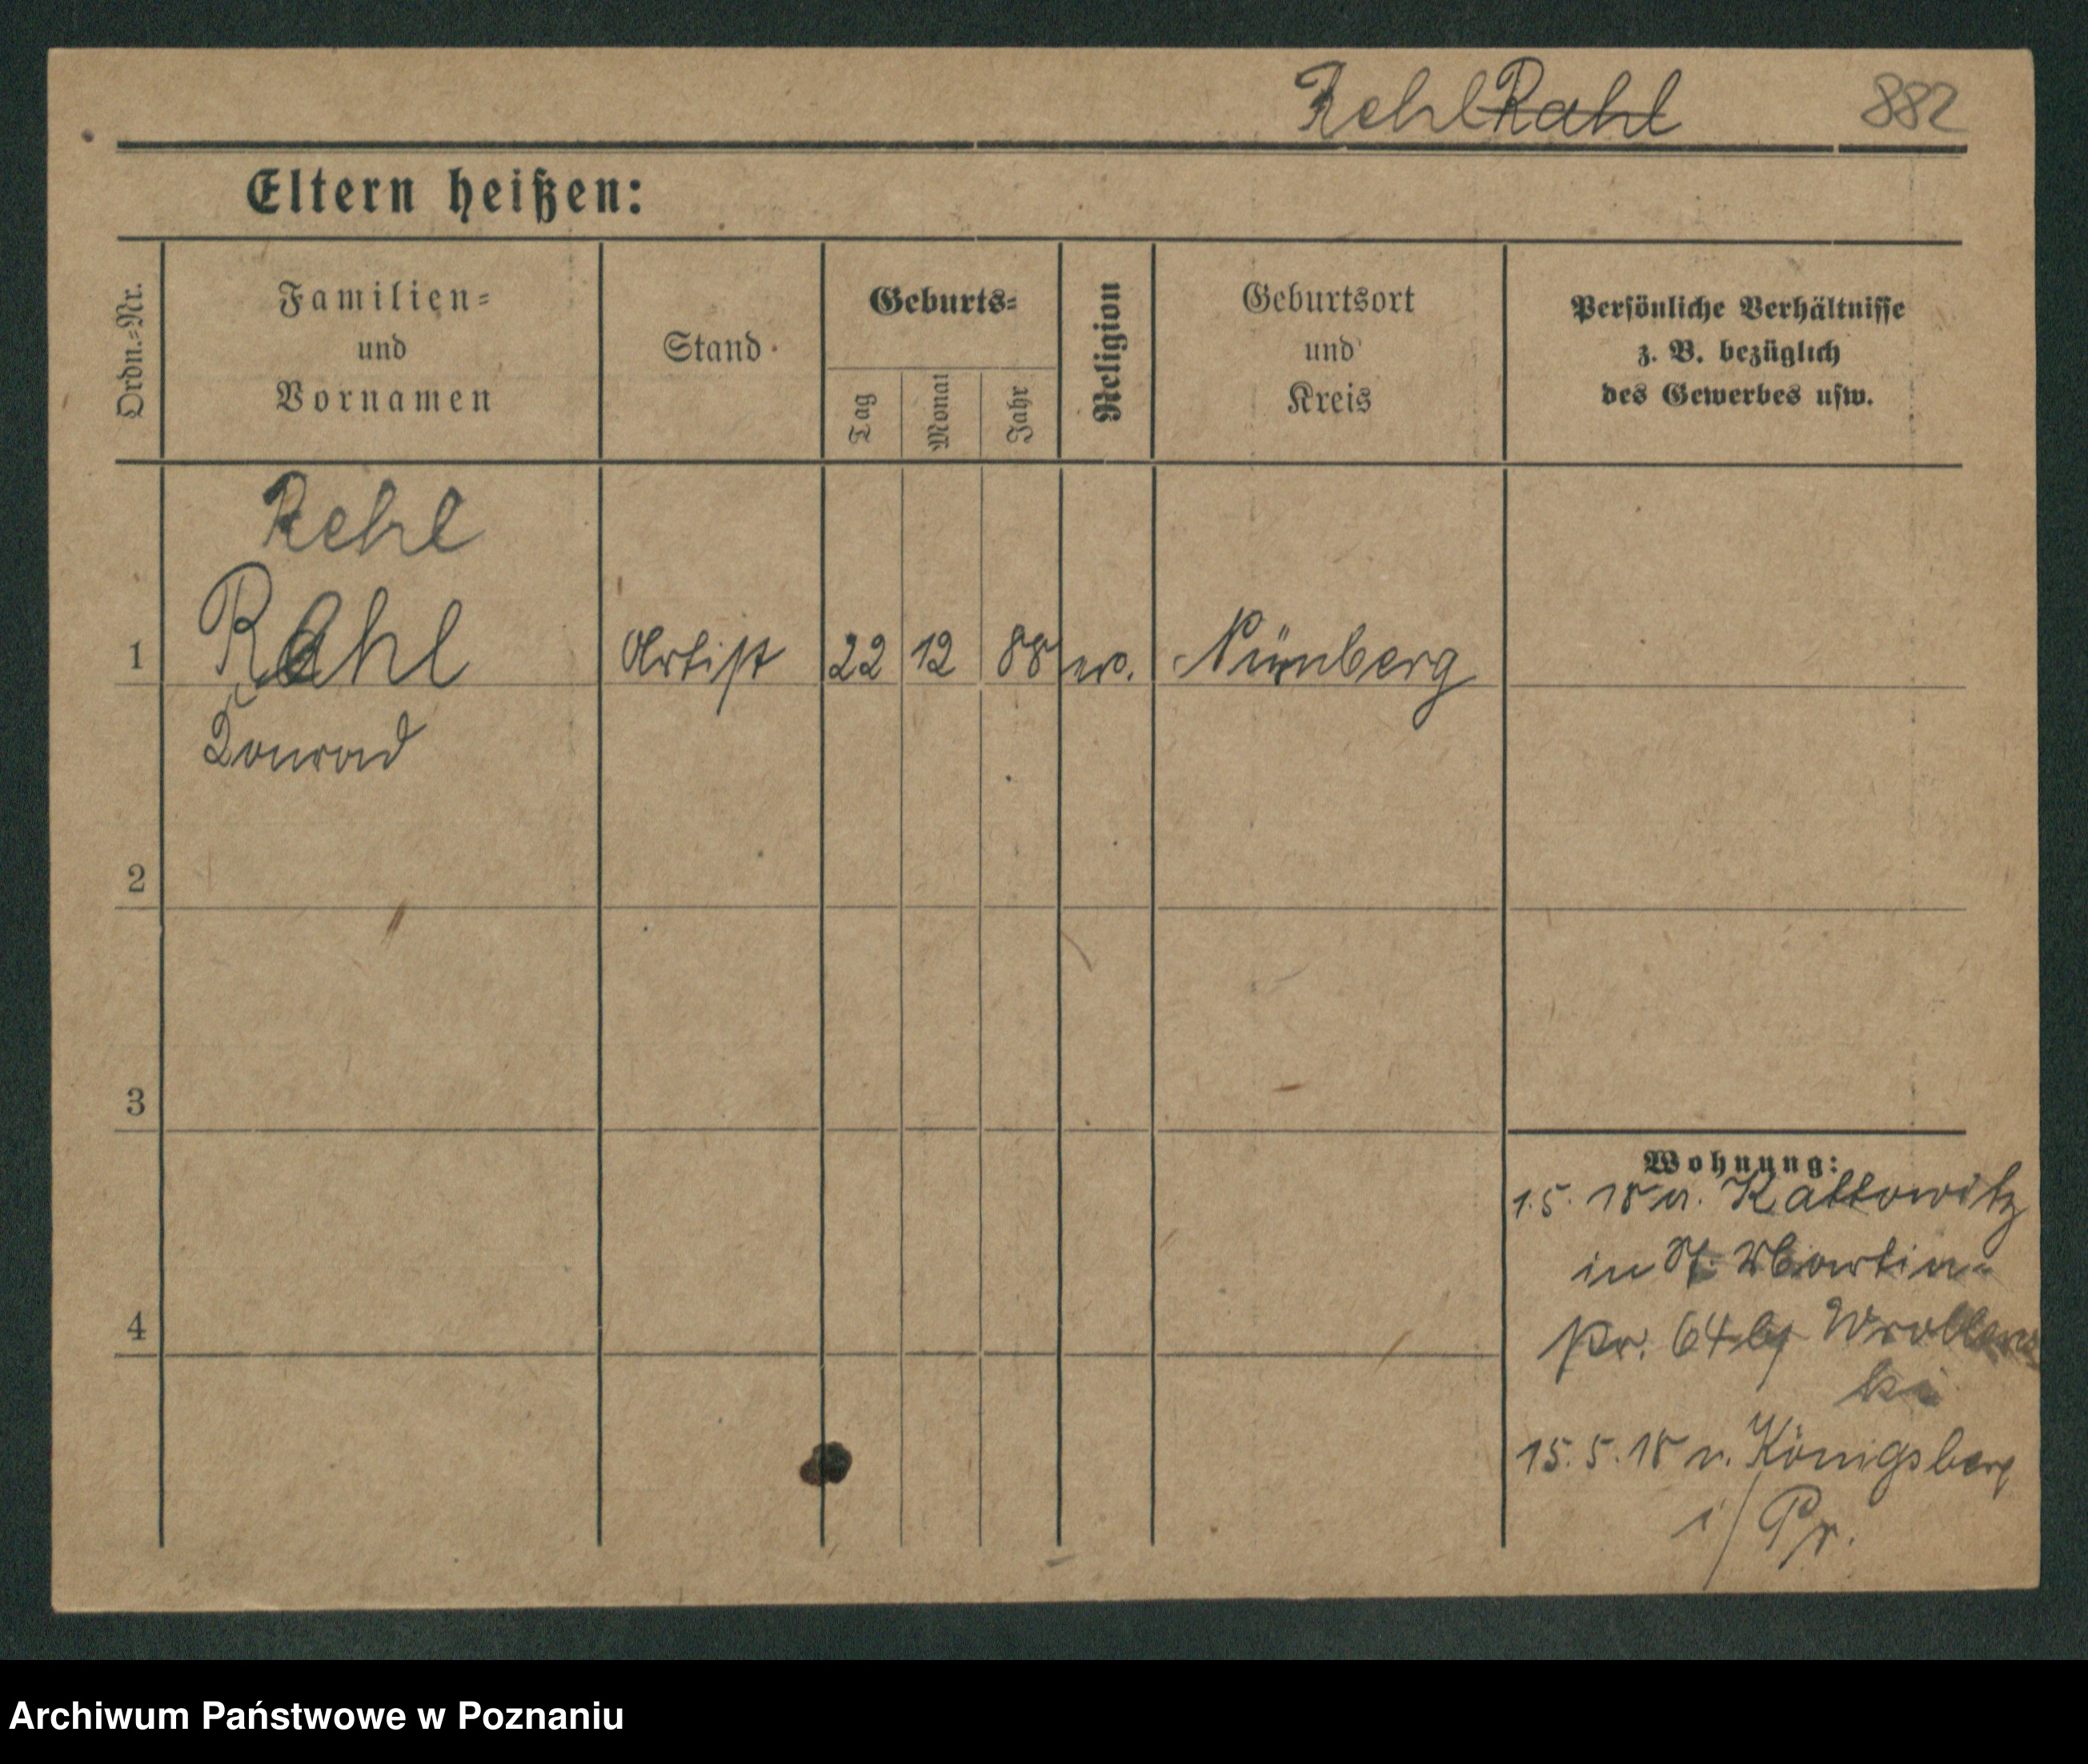 Rehl Rahl 882
Eltern heißen:
Ordn.-Nr.
Familien-
und
Vornamen
Stand
Geburts-
Tag
Monat
Jahr
Religion
Geburtsort
und
Kreis
Persönliche Verhältnisse
z. B. bezüglich
des Gewerbes usw.
Rehl
1 Rahl Artist 22 12 88 ev. Nürnberg
Konrad
2
3
4
Wohnung:
1.5.18 v. Kattowitz
in St. Martin-
str. 64 bei
15.5.18 n. Königsberg
i/Pr.
Archiwum Państwowe w Poznaniu